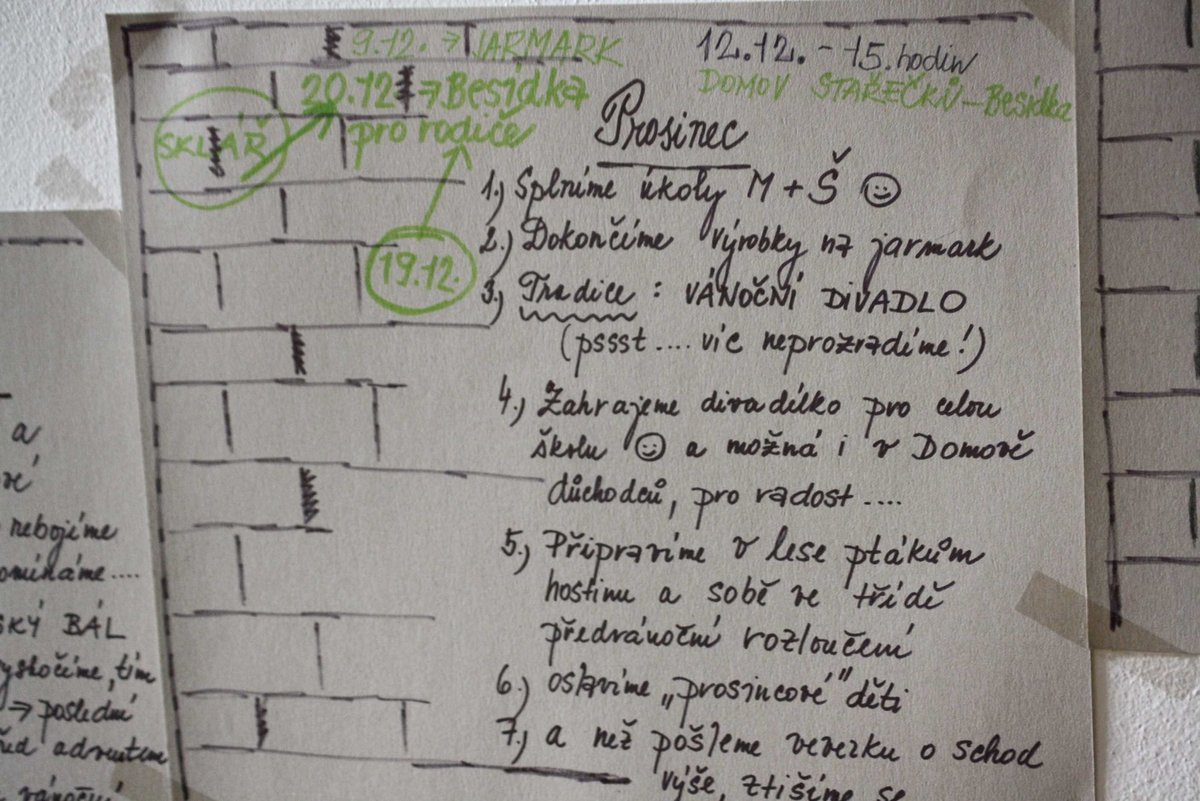 9.12. → JARMARK
12.12. - 15.hodin
DOMOV STAŘEČKŮ - Besídka
20.12. → Besídka
pro rodiče
SKLÁŘ
19.12.
Prosinec
1.) Splníme úkoly M + Š ☺
2.) Dokončíme výrobky na jarmark
3.) Tradice : VÁNOČNÍ DIVADLO
(pssst .... víc neprozradíme!)
4.) Zahrajeme divadélko pro celou
školu ☺ a možná i v Domově
důchodců, pro radost ....
5.) Připravíme v lese ptákům
hostinu a sobě ve třídě
předvánoční rozloučení
6.) oslavíme „prosincové" děti
7.) a než pošleme veverku o schod
výše, ztišíme se
a
nebojíme
BÁL
→ poslední
adventem
vánoční